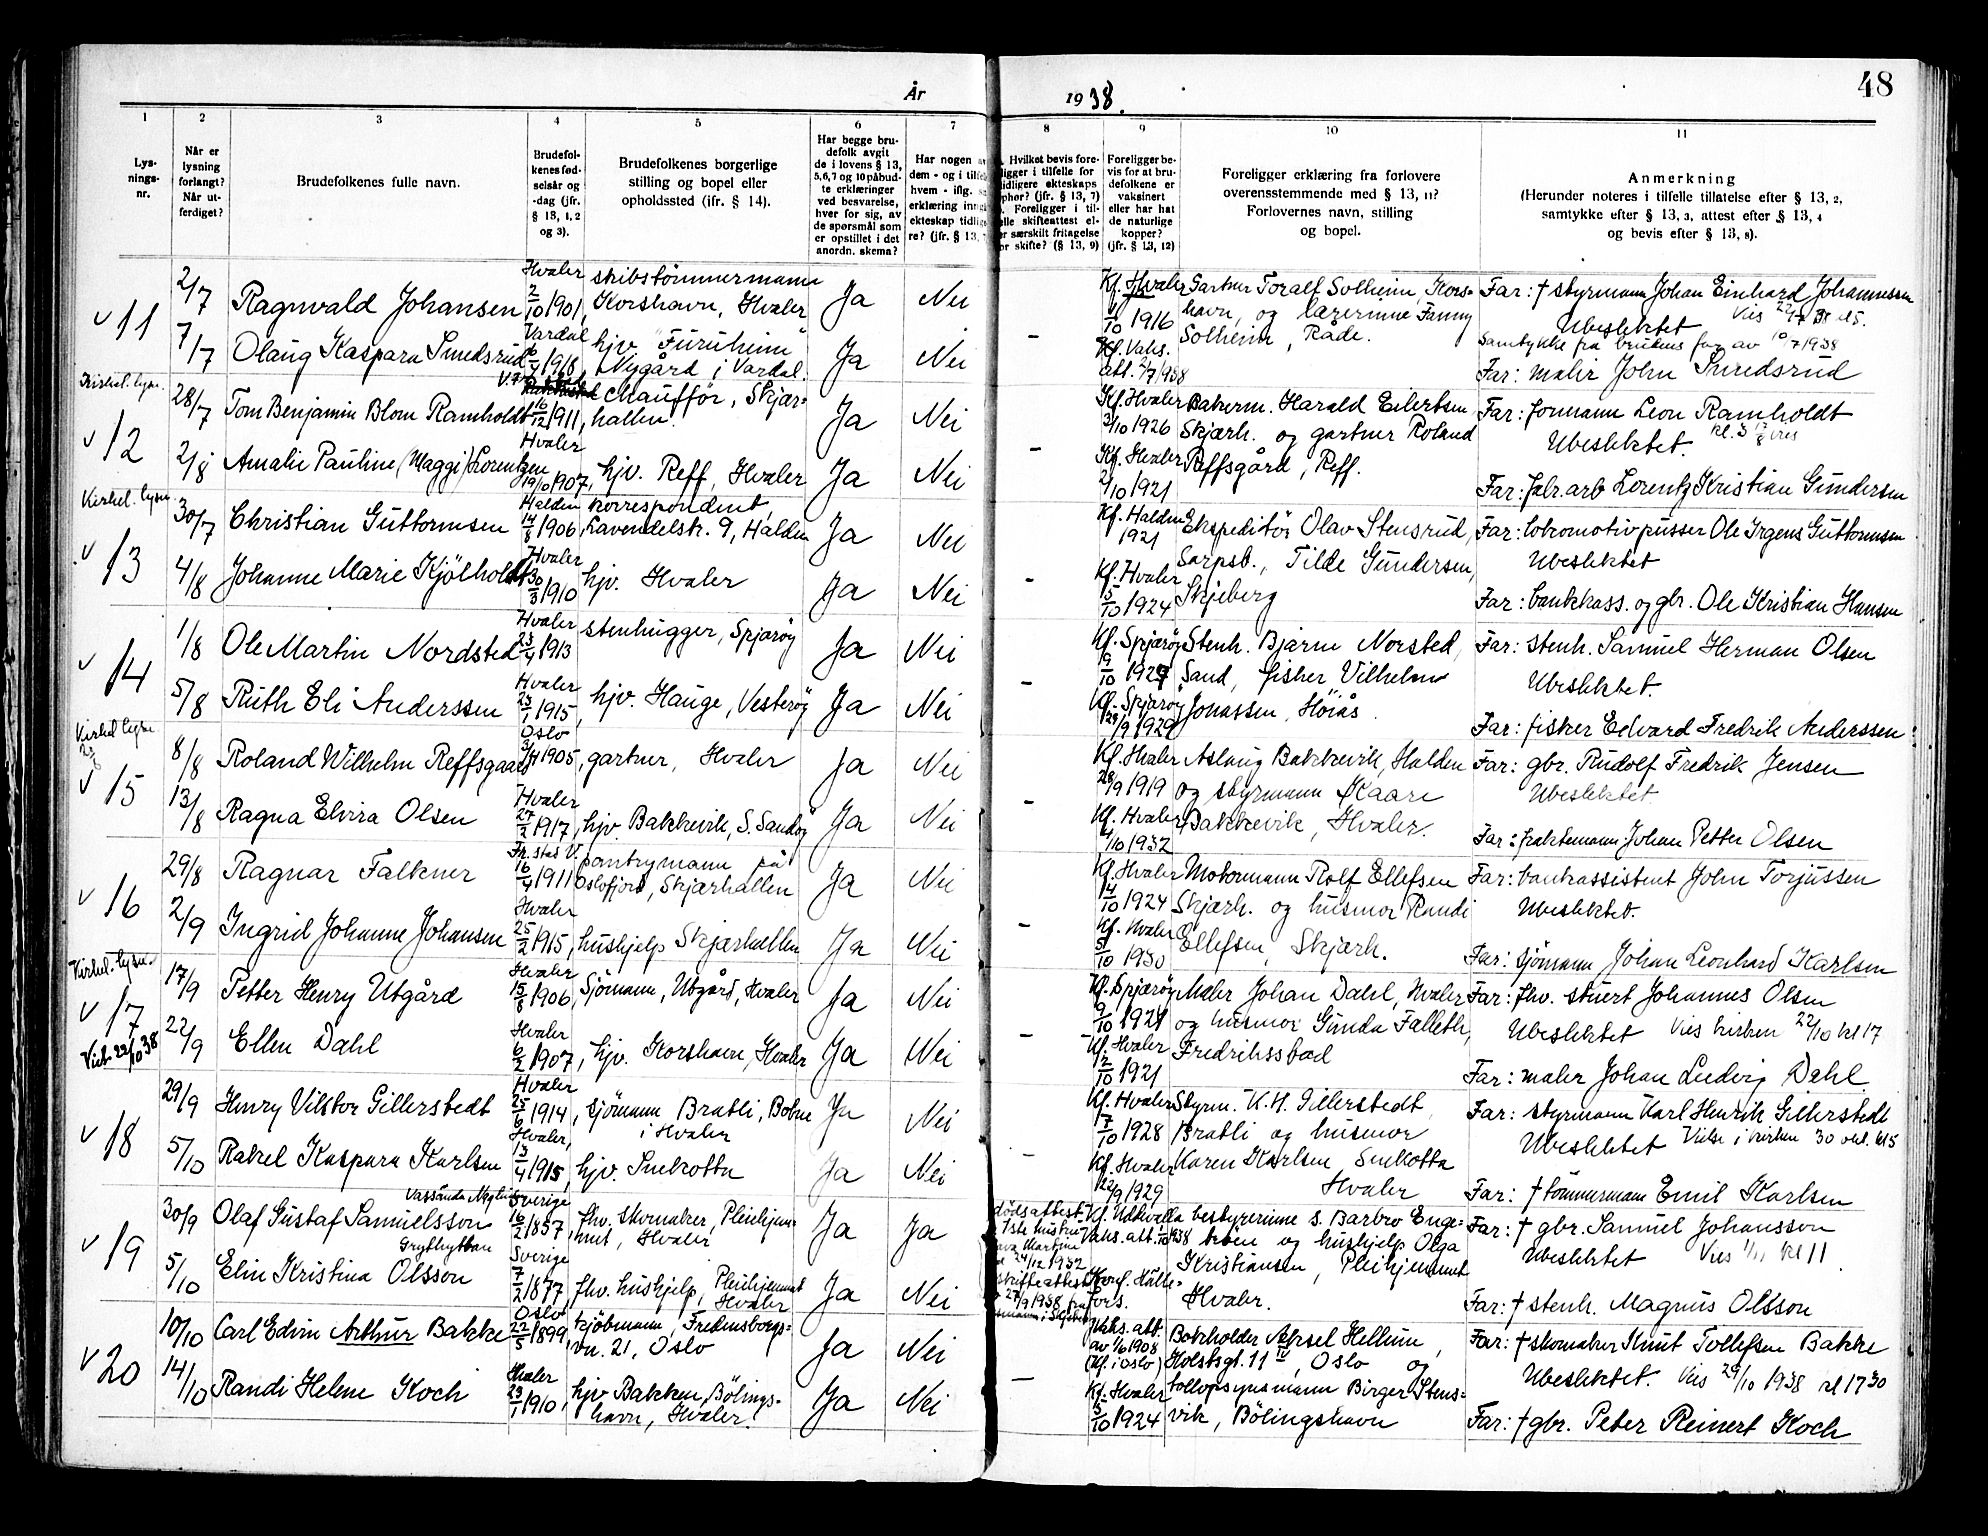 48
År 1938.
1 2 3 4 5 6 7 8 9 10 11
Lys-
nings-
nr.
Når er
lysning
forlangt?
Når ut-
ferdiget?
Brudefolkenes fulle navn.
Brudefol-
kenes fød-
selsår og
-dag (jfr.
§ 13, 1, 2
og 3).
Brudefolkenes borgerlige
stilling og bopel eller
opholdssted (ifr. § 14).
Har begge bru-
defolk avgit
de i lovens § 13,
5, 6, 7 og 10 påbud-
te erklæringer
ved besvarelse,
hver for sig, av
de spørsmål som
er opstillet i det
anordn. skema?
Har nogen av
dem - og i tilfelle
hvem - iflg.
erklæring inng
ekteskap tidlig
re? (jfr. § 13,
Hvilket bevis fore-
ligger i tilfelle for
tidligere ekteskaps
ophør? (jfr. § 13, 7)
Foreligger i til-
elle skifteattest el-
er særskilt fritagelse
or skifte? (§ 13, 9)
Foreligger be-
vis for at bru-
defolkene er
vaksinert
eller har hat
de naturlige
kopper?
(jfr. § 13, 12)
Foreligger erklæring fra forlovere
overensstemmende med § 13, 11?
Forlovernes navn, stilling
og bopel.
Anmerkning
(Herunder noteres i tilfelle tillatelse efter § 13, 2,
samtykke efter § 13, 3, attest efter § 13, 4
og bevis efter § 13, 8).
v 11
2/7 Ragnvald Johansen
Hvaler 2/10 1901,
skibstömmermann
Korshavn, Hvaler
Ja Nei
Kf. Hvaler
/10 1916
Gartner Toralf Solheim, Kors-
havn, og lærerinne Fanny
Solheim, Råde.
Far: † styrmann Johan Einhard Johannesen
Ubeslektet
7/7 Olaug Kaspara Smedsrud
Vardal 1918,
hjv "Furuheim"
Nygård i Vardal.
Ja Nei -
Kf. Vaks.
att. 2/7 1938
Samtykke fra brudens far av 10/7 1938
Far: maler John Smedsrud
Kirkel. lysn.
v 12
28/7 Tom Benjamin Blom Ramholdt
16/12 1911,
Chaufför, Skjær-
hallen.
Ja Nei
Kf. Hvaler
3/10 1926
Bakerm. Harald Eilertsen,
Skjærh. og gartner Roland
Reffsgård, Reff.
Far: formann Leon Ramholdt
Ubeslektet.
2/8 Amalie Pauline (Maggi) Lorentzen
Hvaler
19/10 1907,
hjv. Reff, Hvaler
Ja Nei -
Kf. Hvaler
2/10 1921
Far: fabr. arb Lorentz Kristian Gundersen
Kirkel. lysn.
v 13
30/7 Christian Guttormsen
Halden
14/8 1906
korrespondent,
Lavendelstr. 9, Halden
Ja Nei
Kf. Halden
1921
Ekspeditör Olav Stensrud,
Sarpsb., Tilde Gundersen,
Skjeberg
Far: lokomotivpusser Ole Irgens Guttormsen
Ubeslektet
4/8 Johanne Marie Kjölholdt
Hvaler
30/3 1910
hjv. Hvaler
Ja Nei -
Kf. Hvaler
5/10 1924
Far: bankkass. og gbr. Ole Kristian Hansen
v 14
1/8 Ole Martin Nordsted
Hvaler
23/4 1913
stenhugger, Spjærøy
Ja Nei
Kf. Spjærøy
9/10 1927
Stenh. Bjarne Norsted,
Sand, fisker Vilhelm
Jonassen, Höiås.
Far: stenh. Samuel Herman Olsen
Ubeslektet.
5/8 Ruth Eli Anderssen
Hvaler
23/1 1915,
hjv. Hauge, Vesterøy
Ja Nei -
Kf. Spjærøy
29/9 1929
Far: fisker Edvard Fredrik Anderssen
Kirkel lysn
v 15
8/8 Roland Wilhelm Reffsgaard
Oslo
3/4 1905,
gartner, Hvaler
Ja Nei
Kf. Hvaler
28/9 1919
Aslaug Bakkevik, Halden
og styrmann Kaare
Bakkevik, Hvaler.
Far: gbr. Rudolf Fredrik Jensen
Ubeslektet
13/8 Ragna Elvira Olsen
Hvaler
27/2 1917,
hjv. Bakkevik, S. Sandøy
Ja Nei -
Kf. Hvaler
4/10 1932
Far: fraktemann Johan Petter Olsen
v 16
29/8 Ragnar Falkner
Fr.stad V.
16/4 1911
pantrymann på
Oslofjord, Skjærhallen
Ja Nei
Kf. Hvaler
14/10 1924
Motormann Rolf Ellefsen
Skjærh. og husmor Randi
Ellefsen, Skjærh.
Far: bankassistent John Torjussen
Ubeslektet.
2/9 Ingrid Johanne Johansen
Hvaler
25/2 1915,
hushjelp Skjærhallen
Ja Nei -
Kf. Hvaler
5/10 1930
Far: sjömann Johan Leonhard Karlsen
Kirkel. lysn.
v 17
17/9 Petter Henry Utgård
Hvaler
15/8 1906,
Sjömann, Utgård, Hvaler
Ja Nei
Kf. Spjærøy
9/10 1921
Maler Johan Dahl, Hvaler
og husmor Gunda Falleth,
Fredrikssbad
Far: fhv. stuert Johannes Olsen
Ubeslektet Vies kirken 22/10 kl 17
Viet 22/10 38
22/9 Ellen Dahl
Hvaler
6/2 1907,
hjv. Korshavn, Hvaler
Ja Nei -
Kf. Hvaler
2/10 1921
Far: maler Johan Ludvig Dahl.
v 18
29/9 Henry Viktor Gillerstedt
Hvaler
25/6 1914,
sjömann Bratli, Botne
i Hvaler
Ja Nei
Kf. Hvaler
7/10 1928
Styrm. K.H. Gillerstedt,
Bratli og husmor
Karen Karlsen Snekotta
Hvaler
Far: styrmann Karl Henrik Gillerstedt
Ubeslektet Vielse i kirken 30 okt. kl 5
5/10 Rakel Kaspara Karlsen
Hvaler,
13/4 1915,
hjv. Snekotta
Ja Nei -
Kf. Hvaler
22/9 1929
Far: † tömmermann Emil Karlsen
v 19
30/9 Olaf Gustaf Samuelsson
Sverige
16/2 1857,
fhv. skomaker, Pleiehjem-
met, Hvaler
Ja Ja
dödsattest
skifteattest
27/9 1938 fra
Vaks. att. 1938
bestyrerinne S. Barbro Enge-
bren og hushjelp Olga
Kristiansen, Pleihjemmet
Hvaler.
Far: † gbr. Samuel Johansson
Ubeslektet Vies 1/11 kl 11
Grythyttan
5/10 Elin Kristina Olsson
Sverige
7/2 1877,
fhv. hushjelp, Pleiehjemmet
Hvaler
Ja Nei
Far: † stenh. Magnus Olsson
v 20
10/10 Carl Edvin Arthur Bakke
Oslo
22/5 1899,
kjöbmann, Fredensborgs-
vn. 21, Oslo
Ja Nei
Vaks. att.
av 1/6 1908
(Kf. i Oslo)
Bokholder Aksel Hellum,
Holstsgt. 11 IV, Oslo og
tollopsynsmann Birger Stens-
vik, Bölingshavn
Far: † skomaker Knut Tollefsen Bakke
Ubeslektet. Vies 29/10 1938 kl 17 30
14/10 Randi Helene Koch
Hvaler
23/1 1910,
hjv Bakken, Bölings-
havn, Hvaler.
Ja Nei -
Kf. Hvaler
5/10 1924
Far: † gbr. Peter Reinert Koch